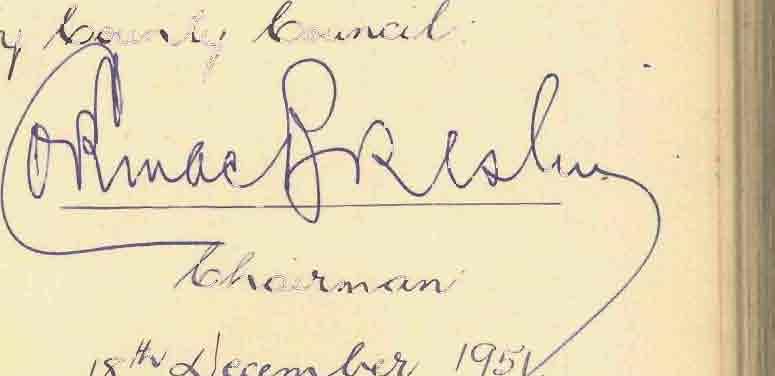 y County Council.
Cormac Breslin
Chairman
18th December 1951